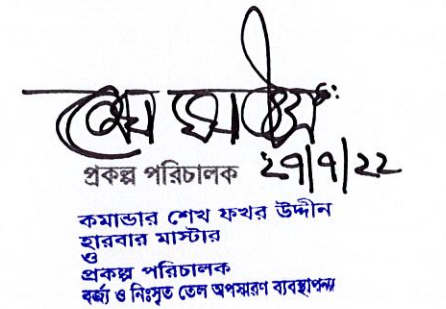 প্রকল্প পরিচালক ২৭/৭/২২
কমান্ডার শেখ ফখর উদ্দীন
হারবার মাস্টার
ও
প্রকল্প পরিচালক
বর্জ্য ও নিঃসৃত তেল অপসারণ ব্যবস্থাপনা